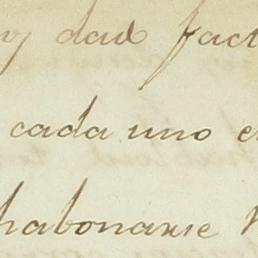 y dad fact
cada uno e
habonarse